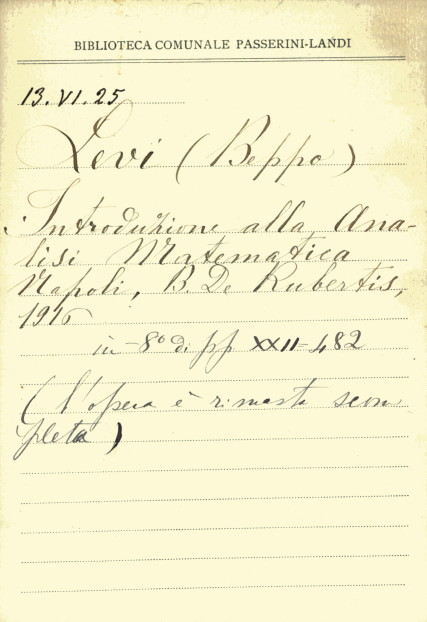 BIBLIOTECA COMUNALE PASSERINI-LANDI
13. VI. 25
Levi (Beppo)
Introduzione alla Ana-
lisi Matematica
Napoli, B. De Rubertis,
1916
in -8° di pp XXII-482
(l'opera è rimasta scom
pleta)